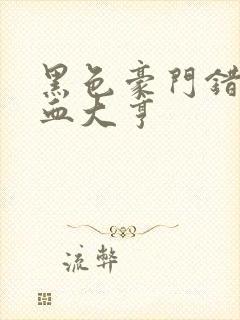 黑色豪門錯
血大亨
流弊